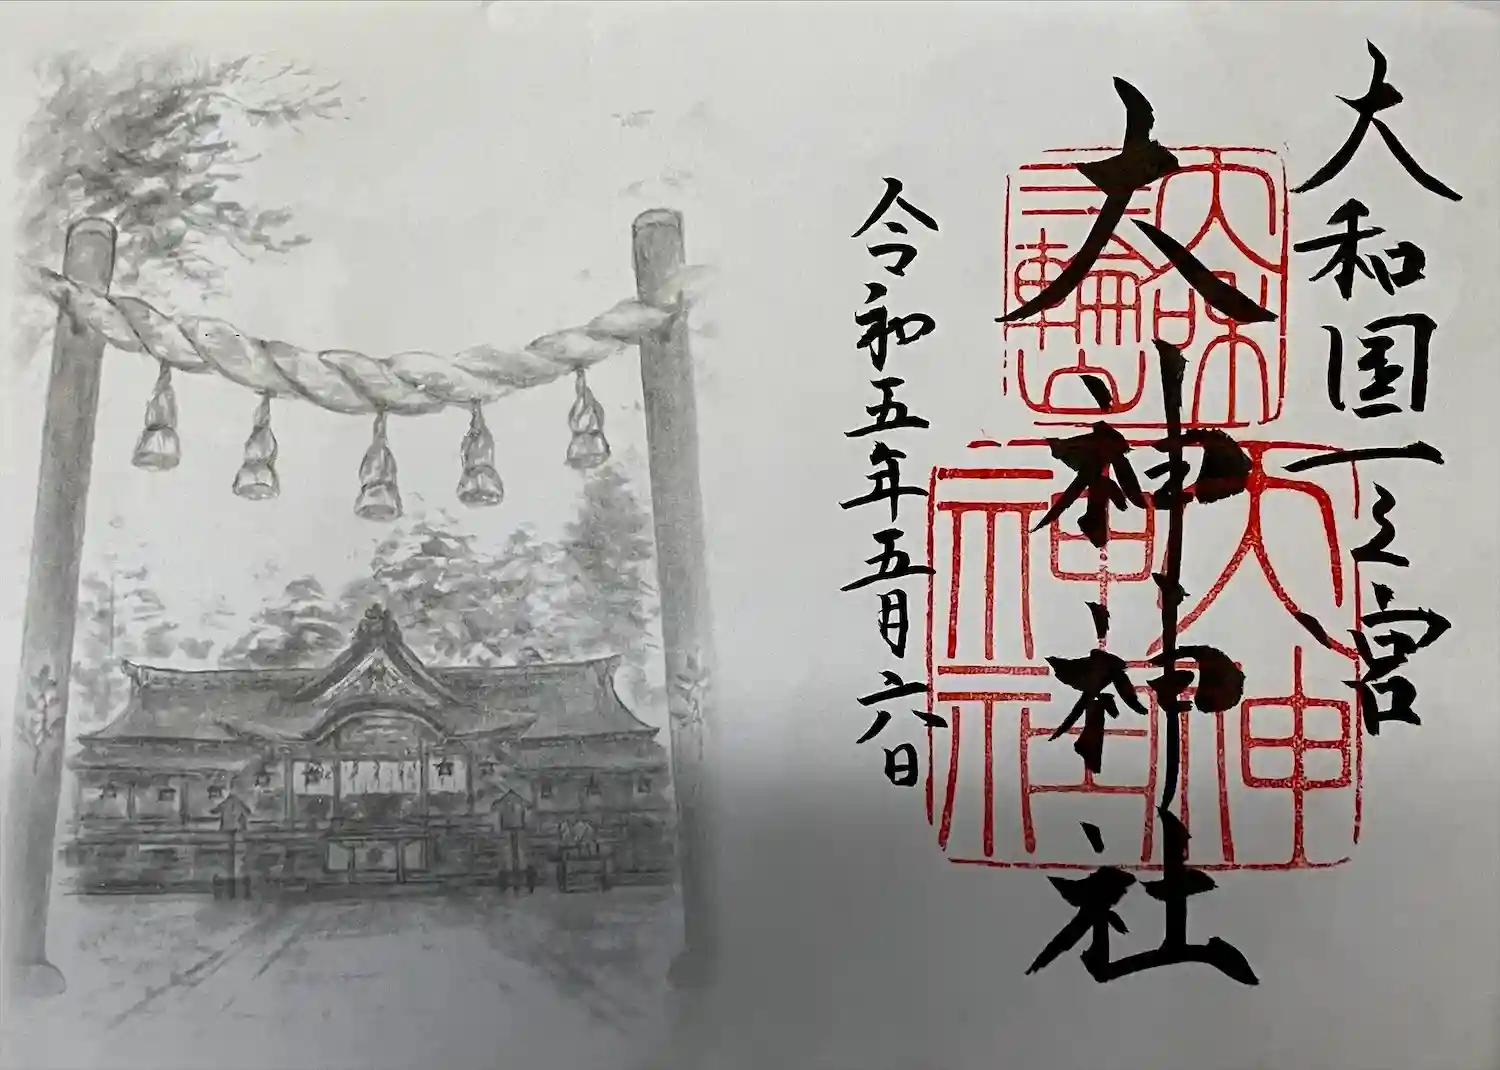 大和国一之宮
大神神社
大和
三輪山
大神
神社
令和五年五月六日